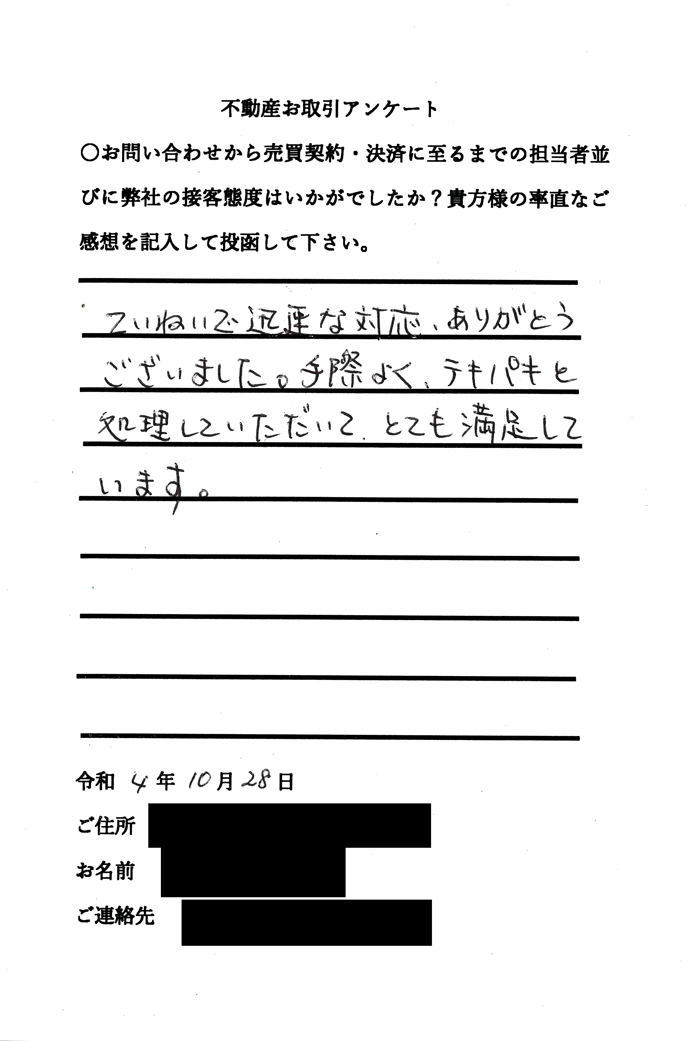 不動産お取引アンケート
〇お問い合わせから売買契約・決済に至るまでの担当者並
びに弊社の接客態度はいかがでしたか？貴方様の率直なご
感想を記入して投函して下さい。
ていねいで迅速な対応、ありがとう
ございました。手際よく、テキパキと
処理していただいて、とても満足して
います。
令和 4 年 10 月 28 日
ご住所
お名前
ご連絡先